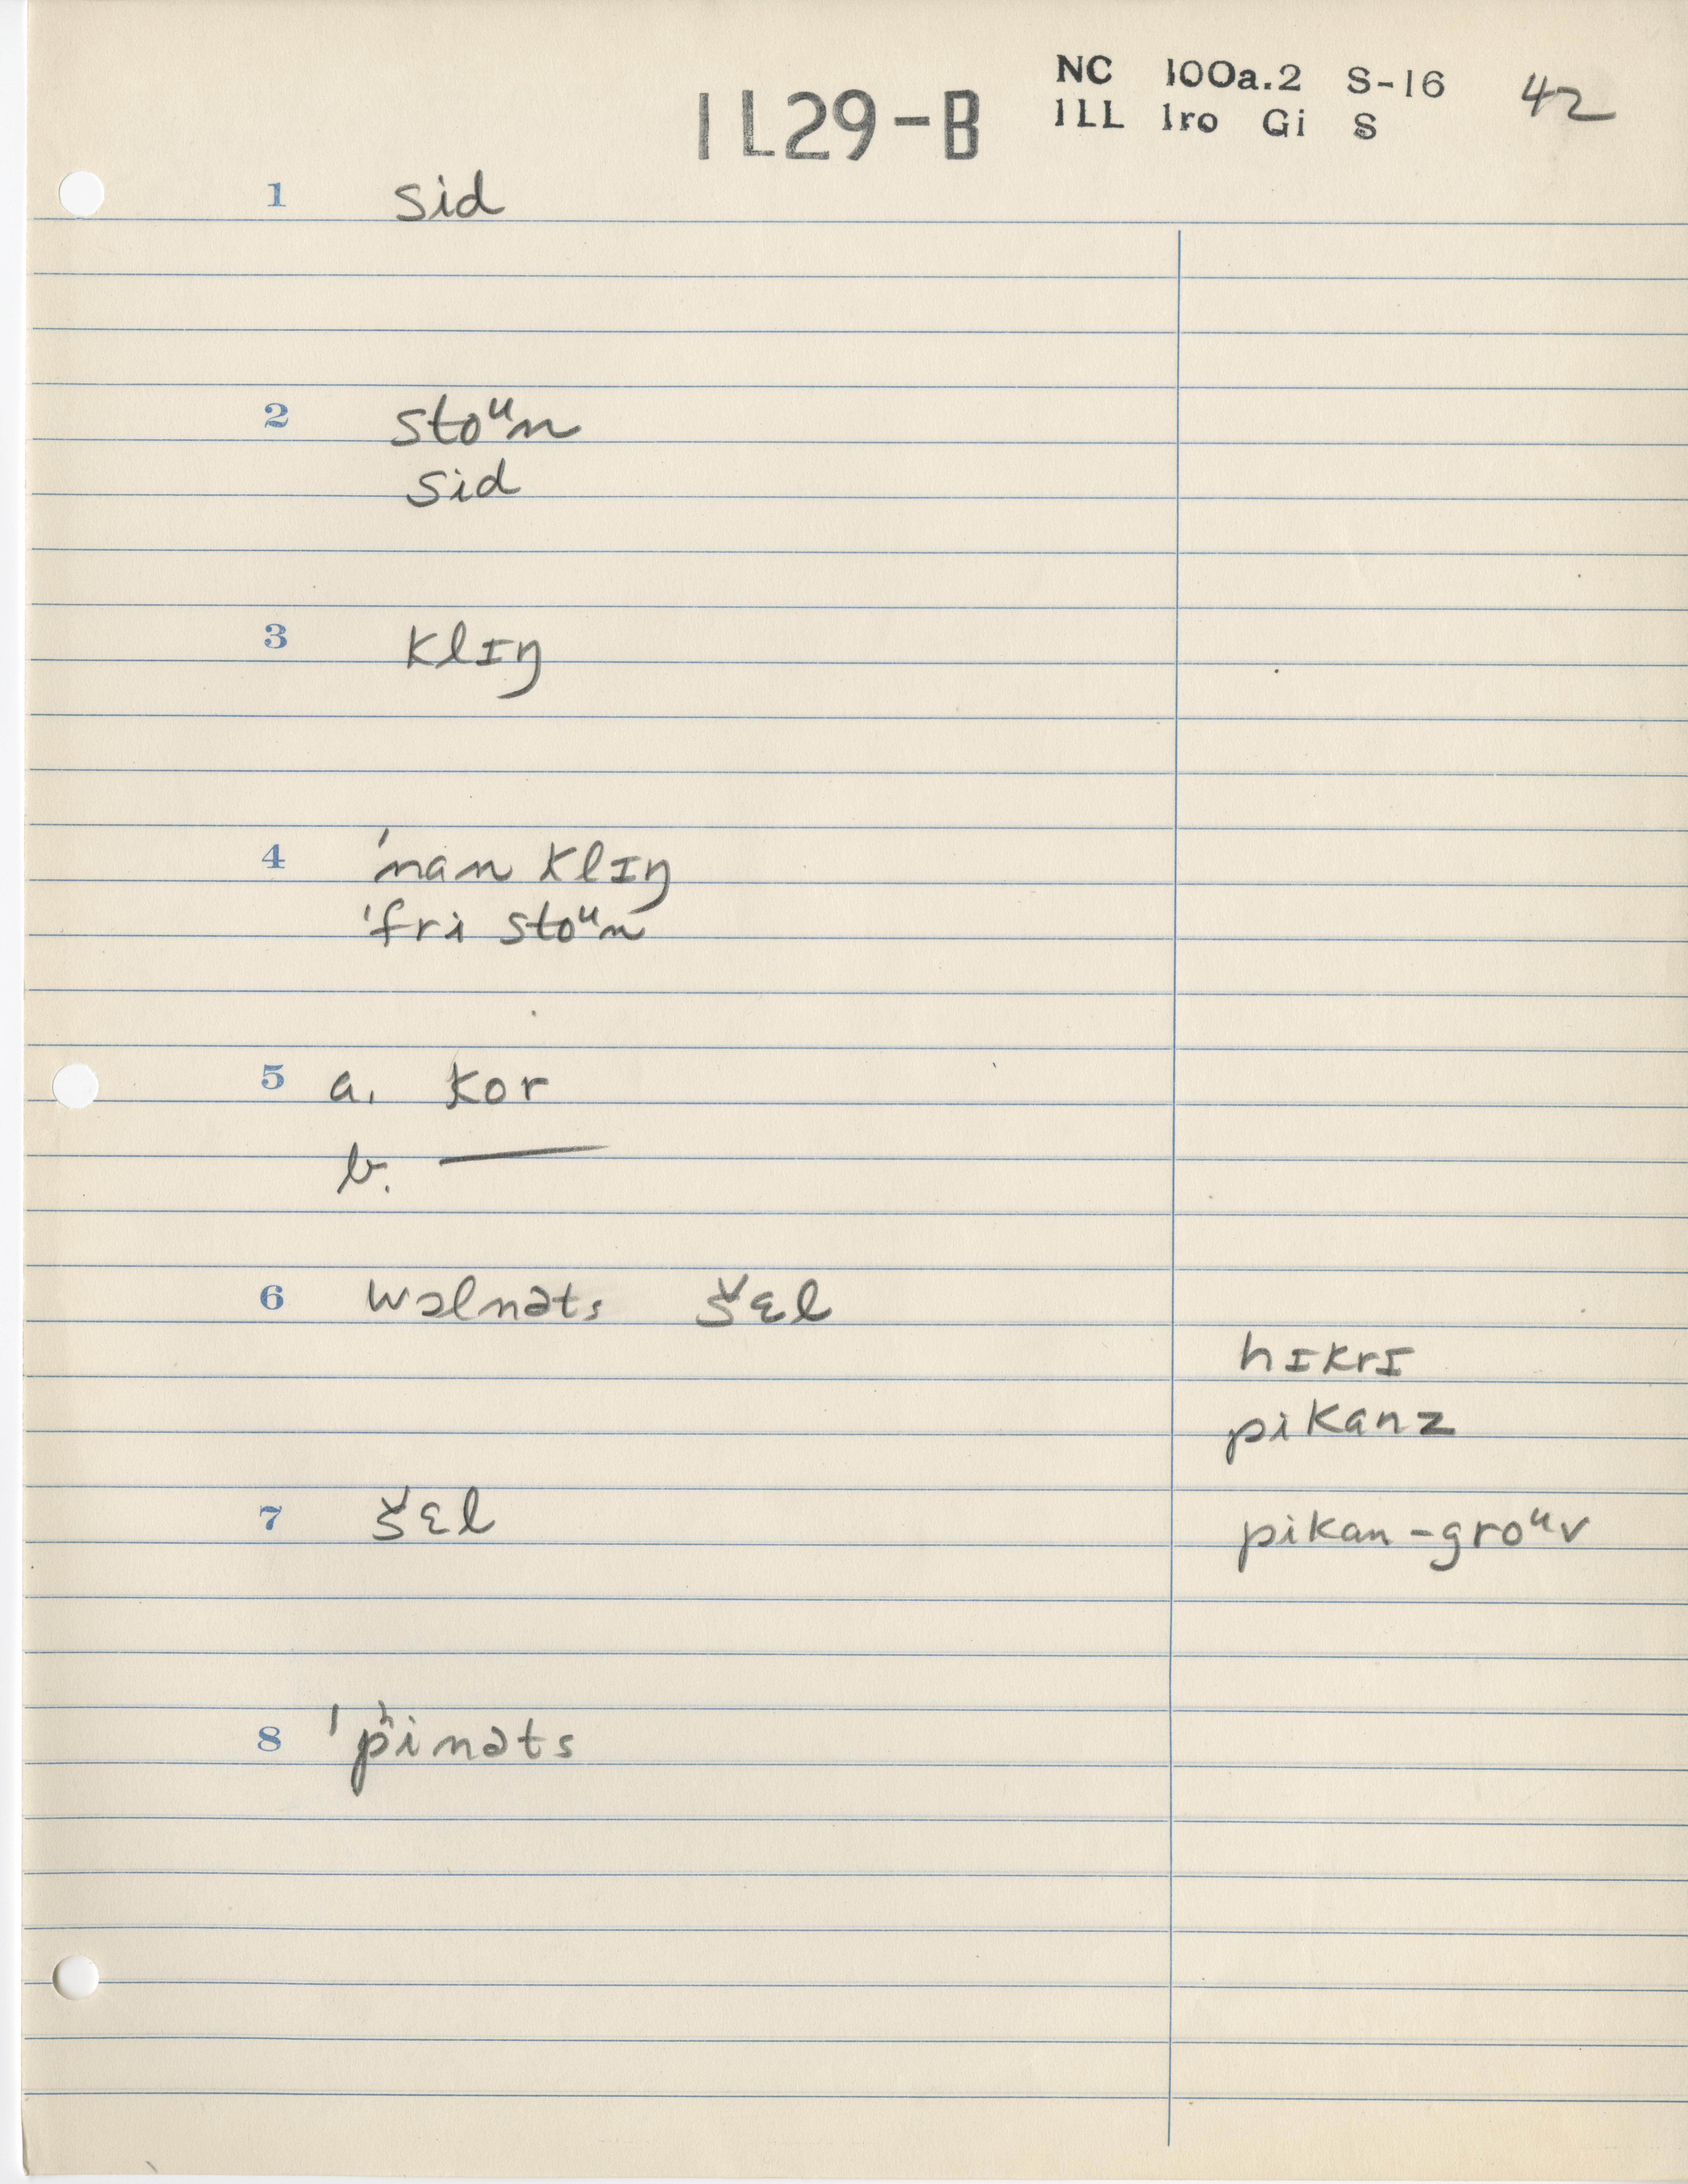 1L29-B
NC 100a.2 S-16 42
ILL Iro Gi S
1 sid
2 stoᵘn
sid
3 klɪŋ
4 'nan klɪŋ
'fri stoᵘn
5 a. kor
b. —
6 wɔlnəts šɛl
hɪkrɪ
pikanz
7 šɛl
pikan-groᵘv
8 'pʰinəts